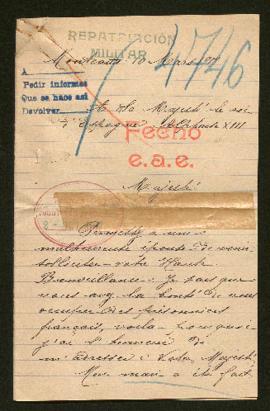 REPATRIACION
MILITAR
4746
A
Pedir informes
Que se hace así
Devolver
A Sa Majesté le roi
d'Espagne Alphonse XIII
Fecho
e.a.e.
Majesté
à une
malheureuse épouse de venir
solliciter votre Haute
Bienveillance. Je sais que
vous avez la bonté de vous
occuper des prisonniers
français, voila pourquoi
j'ai l'honneur de
m'adresser à Votre Majesté
Mon mari a été fait